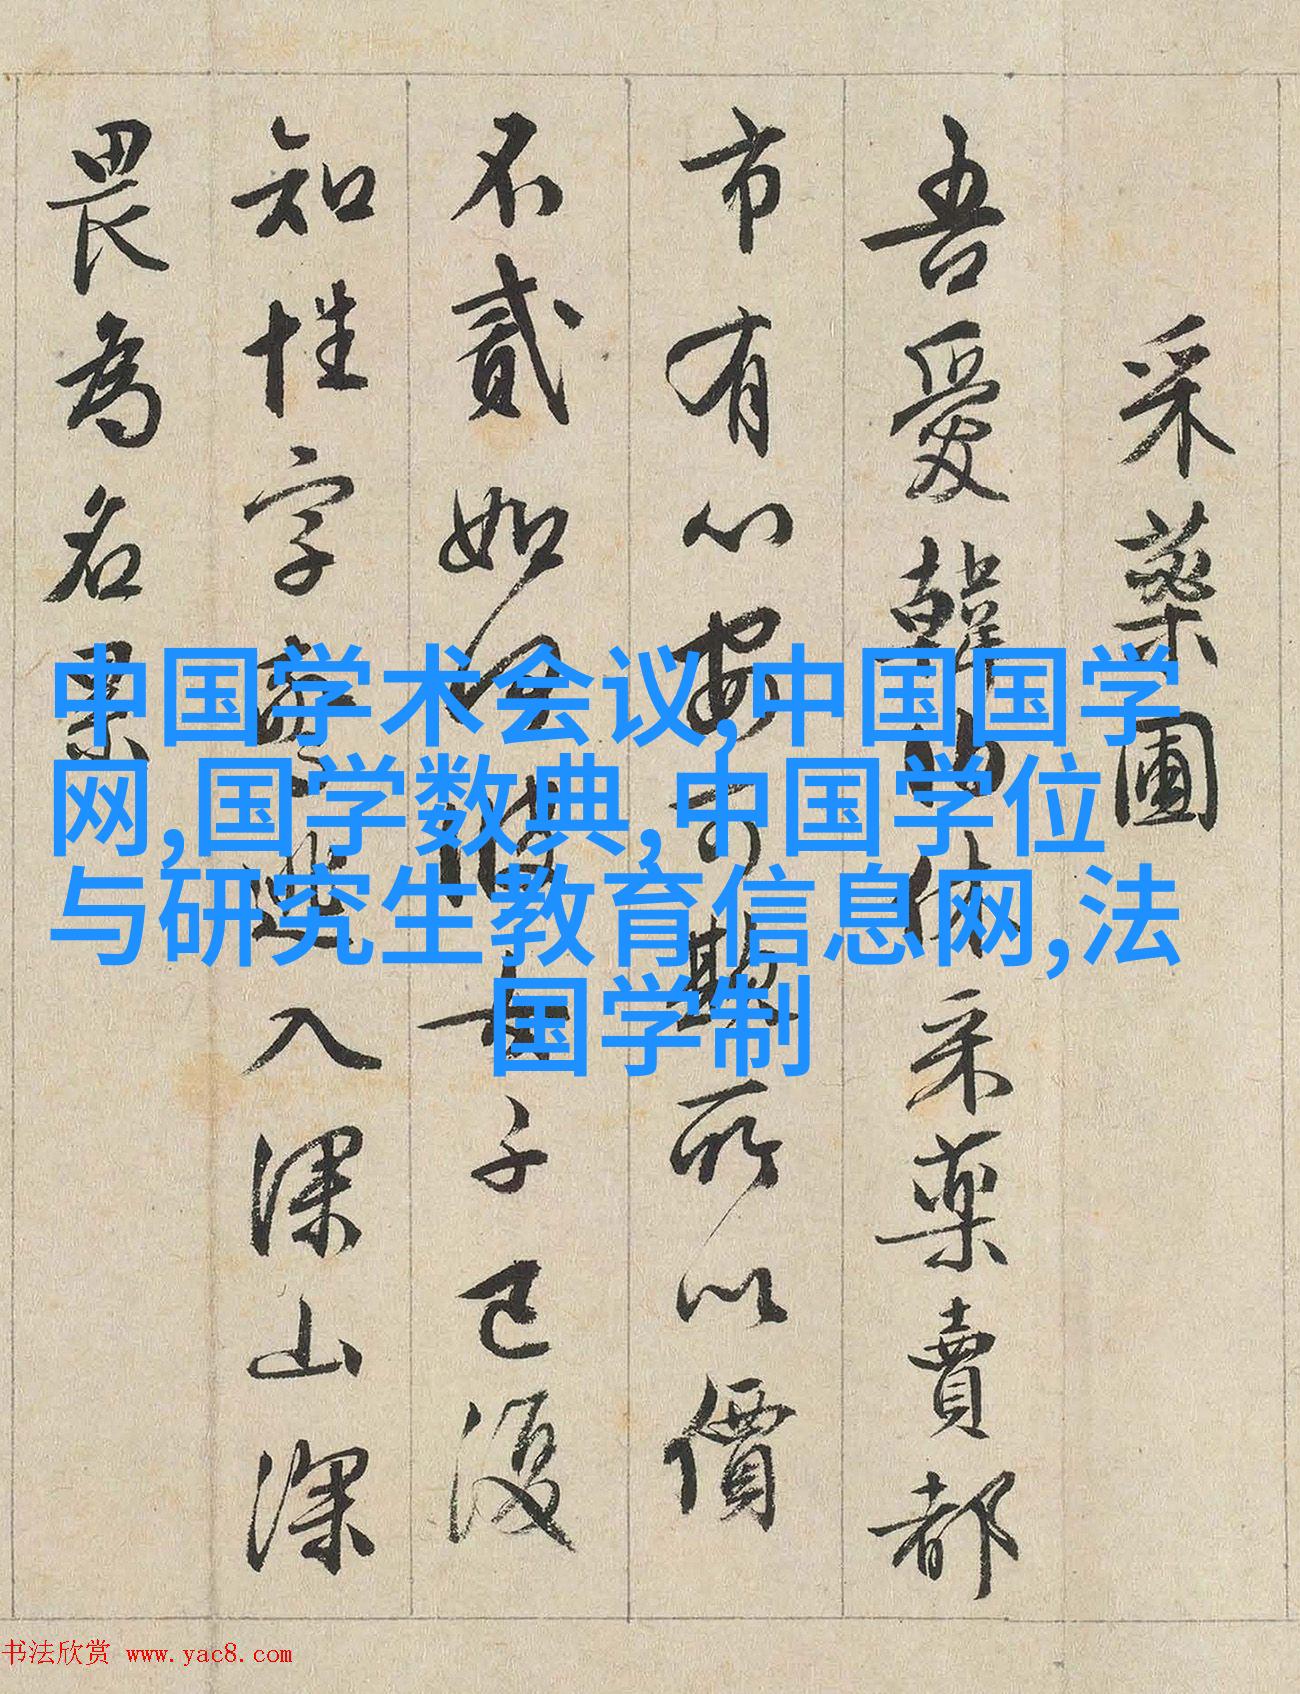 采藥圃
吾愛韓伯休采藥賣都
市有心安可欺所以價
不貳如何彼女子已復
知姓字驚逃入深山深
畏為名累
中国学术会议,中国国学
网,国学数典,中国学位
与研究生教育信息网,法
国学制
书法欣赏 www.yac8.com